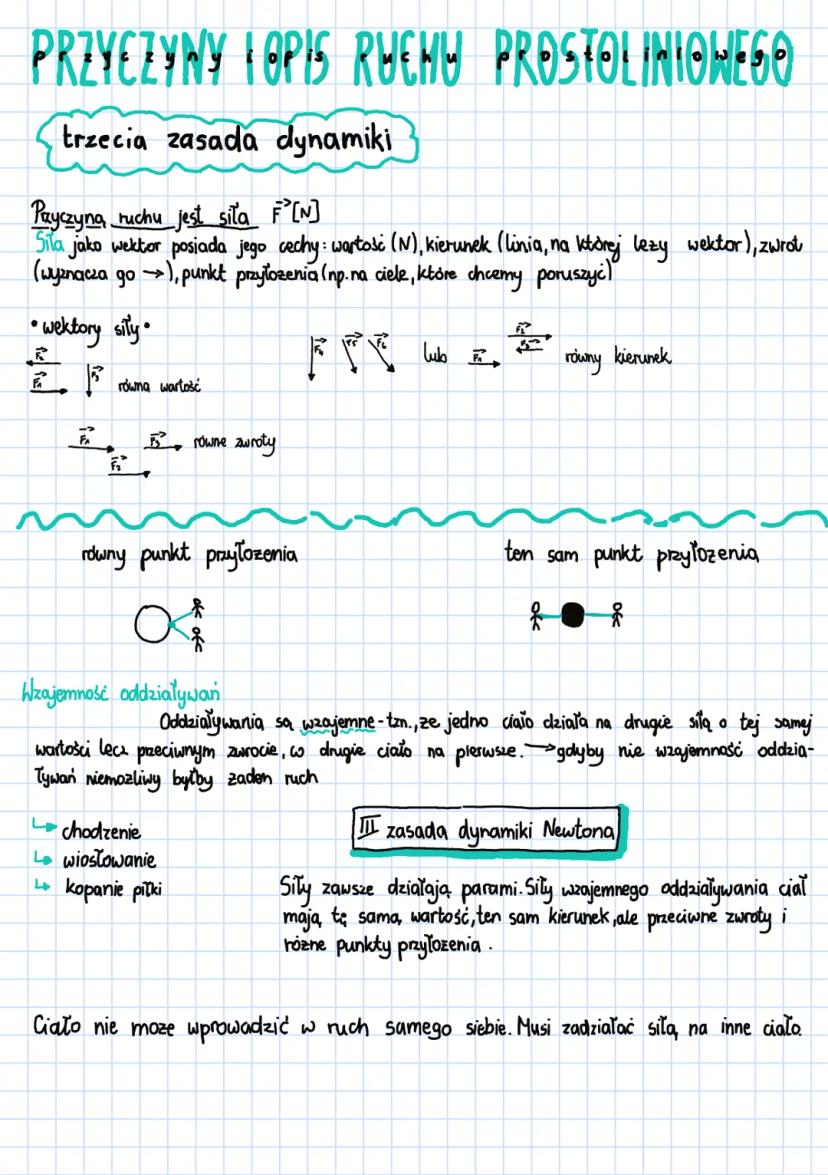 PRZYCZYNY I OPIS RUCHU PROSTOLINIOWEGO
trzecia zasada dynamiki
Przyczyną ruchu jest siła F→[N]
Siła jako wektor posiada jego cechy: wartość (N), kierunek (linia, na której leży wektor), zwrot
(wyznacza go →), punkt przyłożenia (np. na ciele, które chcemy poruszyć)
• wektory siły •
F₁ F₃ równa wartość
F₄ F₅ F₆ lub F₁ F₂ F₃ równy kierunek
F₁ F₂ F₃ równe zwroty
równy punkt przyłożenia
ten sam punkt przyłożenia
Wzajemność oddziaływań
Oddziaływania są wzajemne - tzn., że jedno ciało działa na drugie siłą o tej samej
wartości lecz przeciwnym zwrocie, co drugie ciało na pierwsze. → gdyby nie wzajemność oddzia-
ływań niemożliwy byłby żaden ruch
↳ chodzenie
↳ wiosłowanie
↳ kopanie piłki
III zasada dynamiki Newtona
Siły zawsze działają parami. Siły wzajemnego oddziaływania ciał
mają tę samą wartość, ten sam kierunek, ale przeciwne zwroty i
różne punkty przyłożenia.
Ciało nie może wprowadzić w ruch samego siebie. Musi zadziałać siłą na inne ciało.